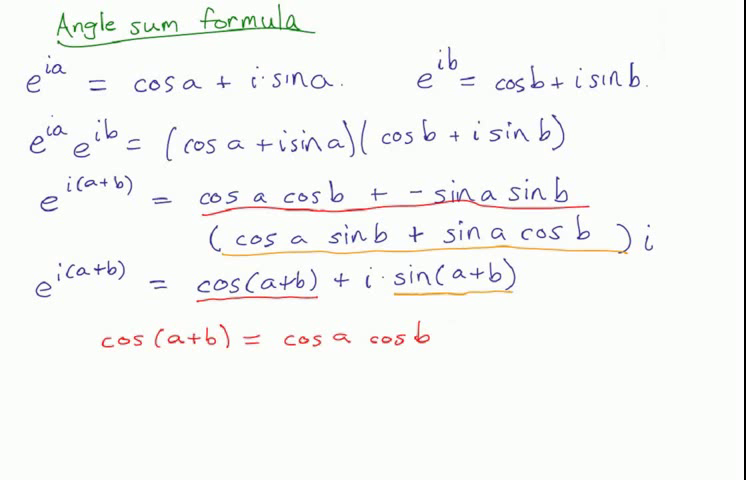 Angle sum formula
e^{ia} = cos a + i · sin a. e^{ib} = cos b + i sin b.
e^{ia} e^{ib} = (cos a + i sin a)( cos b + i sin b)
e^{i(a+b)} = cos a cos b + - sin a sin b
(cos a sin b + sin a cos b ) i
e^{i(a+b)} = cos(a+b) + i · sin(a+b)
cos (a+b) = cos a cos b